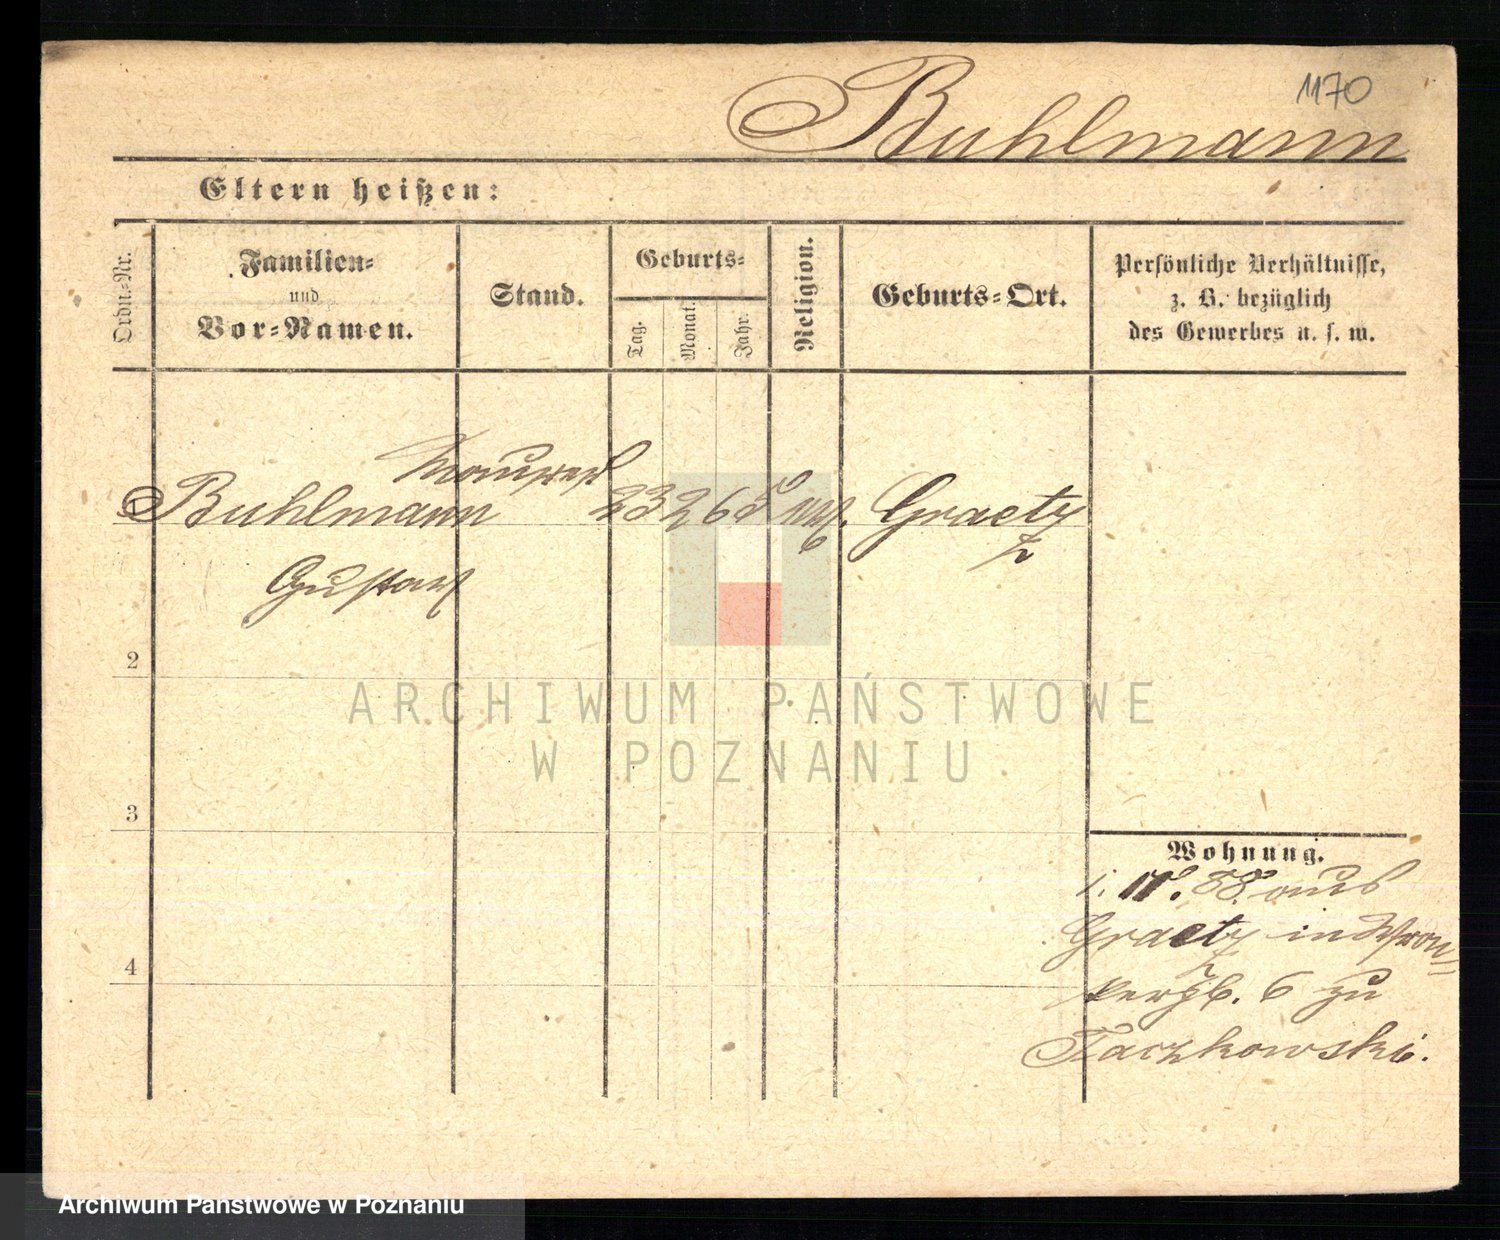 1170
Buhlmann
Eltern heißen:
Ordn.-Nr.
Familien-
und
Vor-Namen.
Stand.
Geburts-
Tag.
Monat.
Jahr.
Religion.
Geburts-Ort.
Persönliche Verhältnisse,
z. B. bezüglich
des Gewerbes u. s. w.
Maurer
Buhlmann 23 2 65 Graetz
Gustav
2
3
4
Wohnung.
88 aus
Graetz in Wron-
kerstr. 6 zu
Taczkowski.
ARCHIWUM PAŃSTWOWE
W POZNANIU
Archiwum Państwowe w Poznaniu